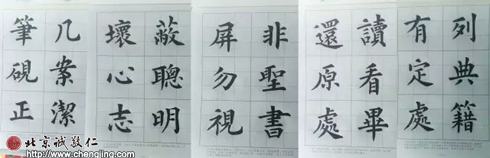 列典籍
有定處
讀看畢
還原處
非聖書
屏勿視
蔽聰明
壞心志
几案潔
筆硯正
北京诚敬仁
http://www.chengjing.com